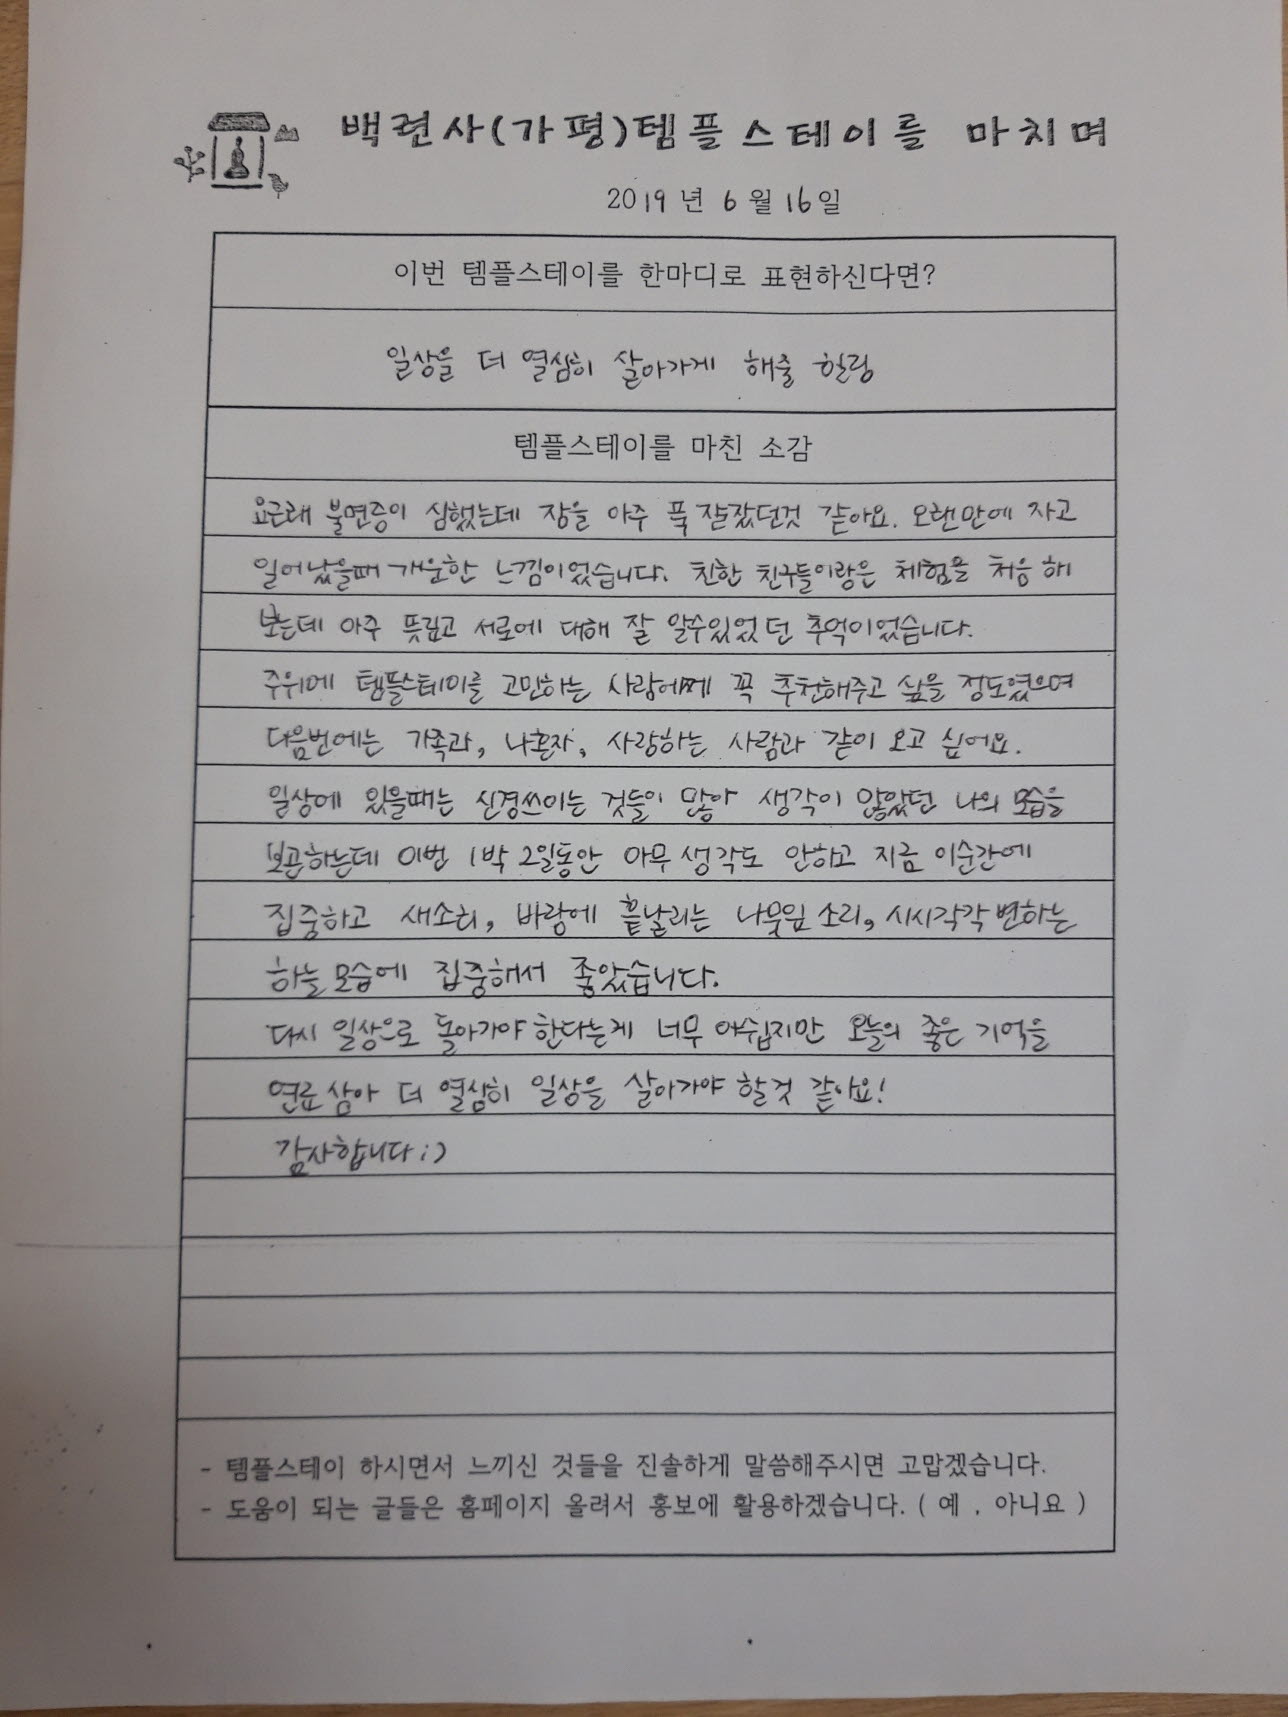 백련사(가평)템플스테이를 마치며
2019년 6월 16일
이번 템플스테이를 한마디로 표현하신다면?
일상을 더 열심히 살아가게 해줄 힐링
템플스테이를 마친 소감
요근래 불면증이 심했는데 잠을 아주 푹 잘잤던것 같아요. 오랜만에 자고
일어났을때 개운한 느낌이었습니다. 친한 친구들이랑은 체험을 처음 해
보는데 아주 뜻깊고 서로에 대해 잘 알수있었던 추억이었습니다.
주위에 템플스테이를 고민하는 사람에께 꼭 추천해주고 싶을 정도였으며
다음번에는 가족과, 나혼자, 사랑하는 사람과 같이 오고 싶어요.
일상에 있을때는 신경쓰이는 것들이 많아 생각이 많았던 나의 모습을
보곤하는데 이번 1박 2일동안 아무 생각도 안하고 지금 이순간에
집중하고 새소리, 바람에 흩날리는 나뭇잎 소리, 시시각각 변하는
하늘 모습에 집중해서 좋았습니다.
다시 일상으로 돌아가야 한다는게 너무 아쉽지만 오늘의 좋은 기억을
연료 삼아 더 열심히 일상을 살아가야 할것 같아요!
감사합니다 :)
- 템플스테이 하시면서 느끼신 것들을 진솔하게 말씀해주시면 고맙겠습니다.
- 도움이 되는 글들은 홈페이지 올려서 홍보에 활용하겠습니다. ( 예 , 아니요 )